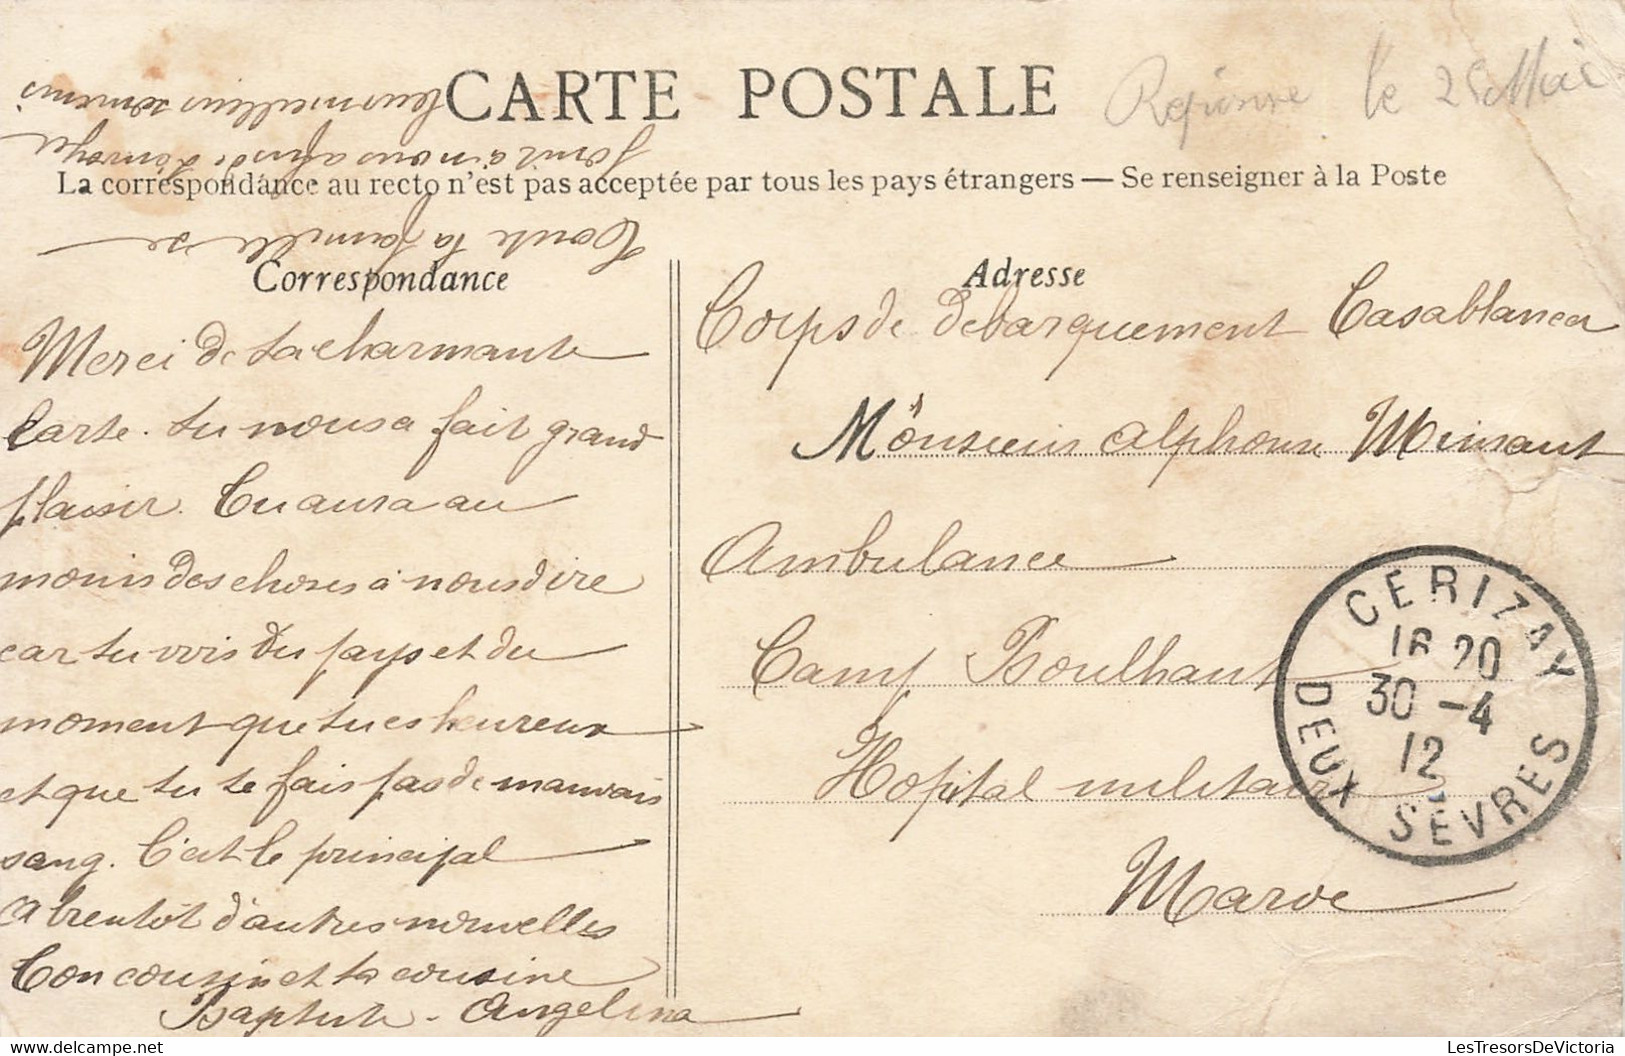 CARTE POSTALE
Reponse le 25 Mai
La correspondance au recto n'est pas acceptée par tous les pays étrangers — Se renseigner à la Poste
Correspondance
Merci de ta charmante
Carte. tu nous a fait grand
plaisir. Tu aura au
moins des choses à nous dire
car tu vois du pays et du
moment que tu es heureux
et que tu te fais pas de mauvais
sang. C'est le principal
A bientôt d'autres nouvelles
Ton cousin et ta cousine
Baptiste - Angelina
Toute la famille se
joint à nous afin de t'envoyer
leur meilleurs souvenirs
Adresse
Corps de debarquement Casablanca
Monsieur Alphonse
Ambulance
Camp Boulhaut
Hopital militaire
Maroc
CERIZAY
16 20
30 -4
12
DEUX SÈVRES
LesTresorsDeVictoria